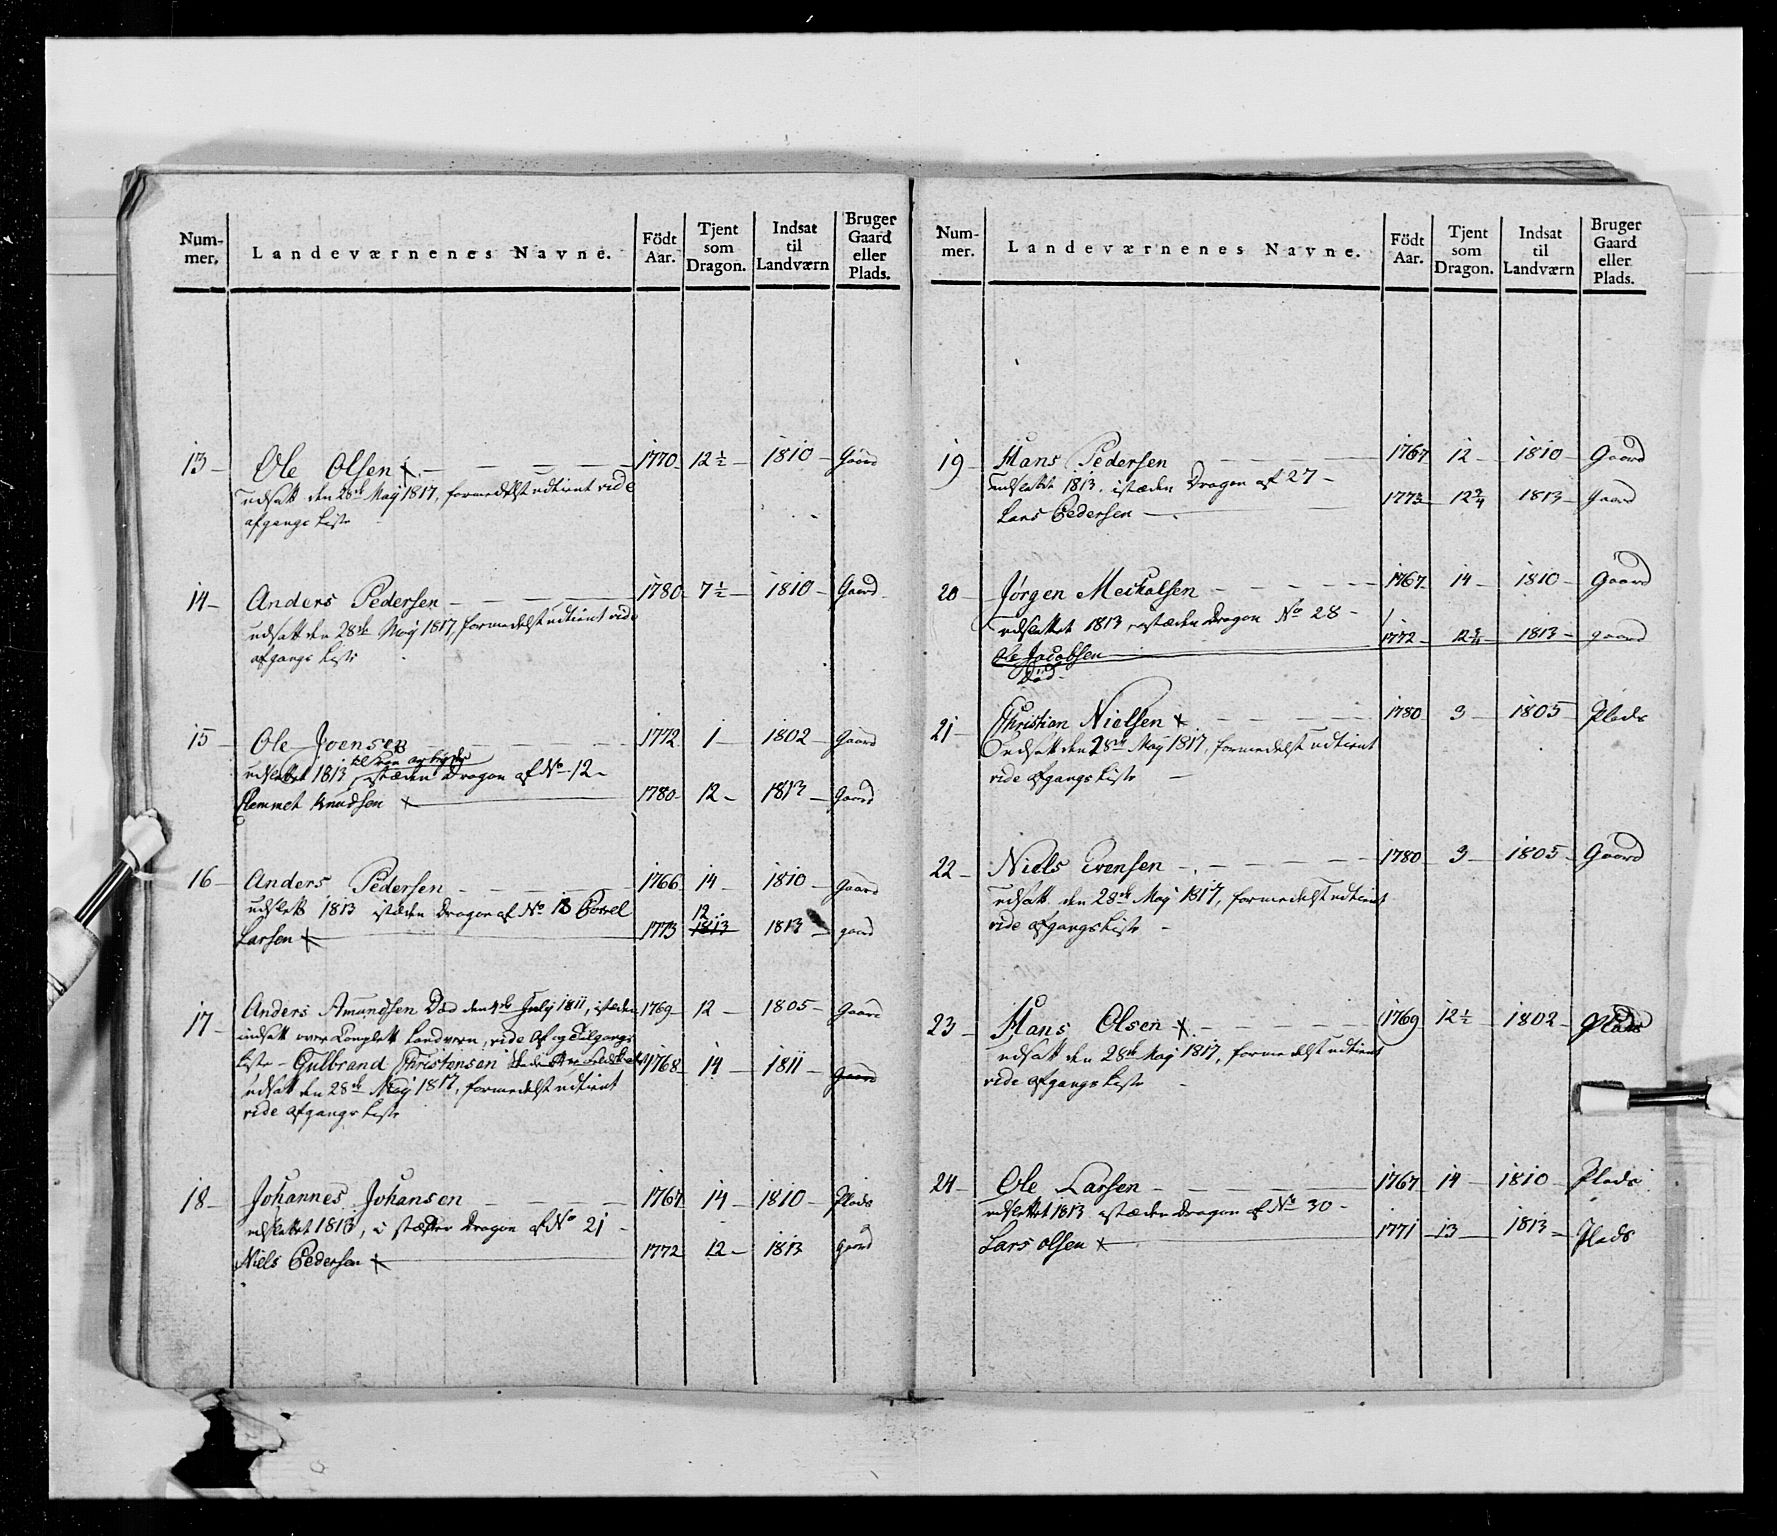 Num-
mer.
Landeværnenes Navne.
Födt
Aar.
Tjent
som
Dragon.
Indsat
til
Landværn
Bruger
Gaard
eller
Plads.
13 – Ole Olsen x – – – – 1770 – 12 ½ – 1810 – Gaard
udsatt den 28de Maij 1817, formedelst udtient vide
afgangs Liste
14 – Anders Pedersen – – – 1780 – 7 ½ – 1810 – Gaard
udsatt den 28de Maij 1817, formedelst udtient vide
afgangs Liste
15 – Ole Joensen – – – 1772 – 1 – 1802 – Gaard
udslettet 1813, istæden Dragon af No 12 –
Clemmet Knudsen x – 1780 – 12 – 1813 – Gaard
16 – Anders Pedersen – – – 1766 – 14 – 1810 – Gaard
udslett 1813 istæden Dragon af No 18 Povel
Larsen x – 1773 12 1813 1813 – gaard
17 – Anders Amundsen Død den 4de July 1811, istæden 1769 – 12 – 1805 – Gaard
indsatt over Complett Landvern, vide Af og Tilgangs
Liste – Gulbrand Christensen 1768 – 14 – 1811 – Gaard
udsatt den 28de Maij 1817, formedelst udtient
vide afgangs Liste
18 – Johannes Johansen – – – 1767 – 14 – 1810 – Plads
udslettet 1813, i stæder Dragon af No 21 –
Niels Pedersen x – 1772 – 12 – 1813 gaard
Num-
mer.
Landeværnenes Navne.
Födt
Aar.
Tjent
som
Dragon.
Indsat
til
Landværn
Bruger
Gaard
eller
Plads.
19 – Hans Pedersen – – – 1767 – 12 – 1810 – Gaard
udslettet 1813, istæden Dragon af 27 –
Lars Pedersen – 1773 – 12 ¾ 1813 – Gaard
20 – Jørgen Meckalsen – – – 1767 – 14 – 1810 – Gaard
udslettet 1813, istæden Dragon No 28 –
Ole Jacobsen – 1772 – 12 ¾ – 1813 – gaard
Død –
21 – Christian Nielsen x – – – 1780 – 3 – 1805 – Plads
udsatt den 28de Maij 1817, formedelst udtient
vide afgangs Liste –
22 – Niels Evensen – – – 1780 – 3 – 1805 – Gaard
udsatt den 28de Maij 1817, formedelst udtient
vide afgangs Liste –
23 – Hans Olsen x – – – 1769 12 ½ – 1802 – Plads
udsatt den 28de Maij 1817, formedelst udtient
vide afgangs Liste –
24 – Ole Larsen – – – 1767 – 14 – 1810 – Plads
udslettet 1813 istæden Dragon af No 30 –
Lars Olsen x – 1771 – 13 – 1813 – Plads